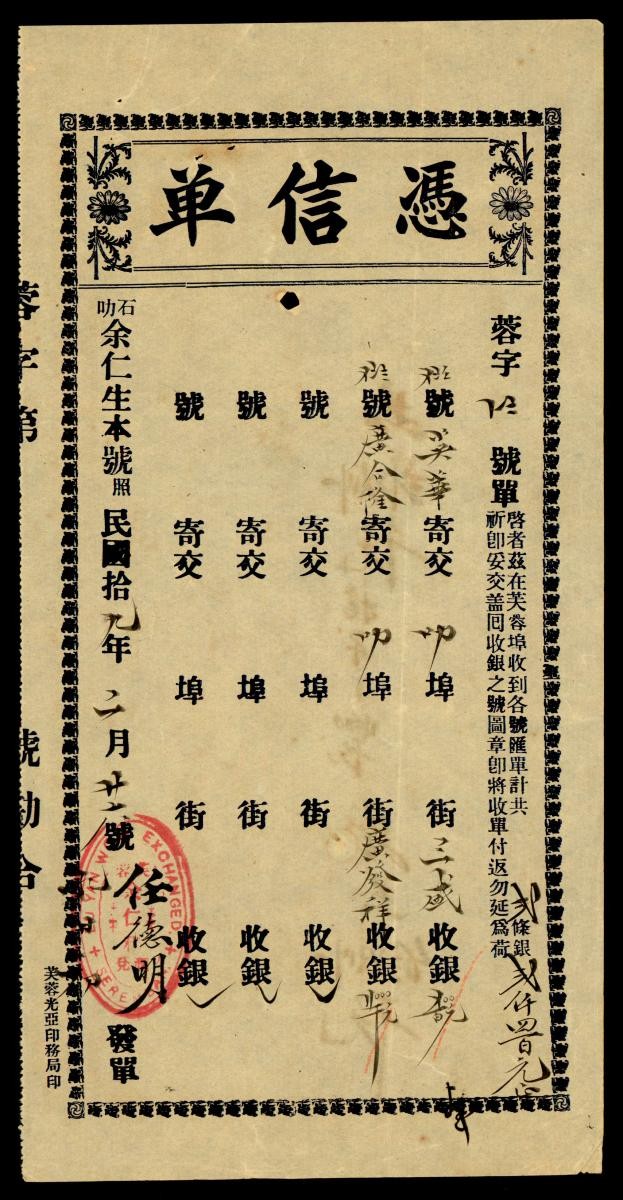 憑信单
蓉字 號單
啓者茲在芙蓉埠收到各號匯單計共弍條銀弍仟四百元正
祈卽妥交盖囘收銀之號圖章卽將收單付返勿延爲荷
號英華寄交叻埠 街三盛收銀
號廣合隆寄交叻埠 街廣發祥收銀
號 寄交 埠 街 收銀
號 寄交 埠 街 收銀
號 寄交 埠 街 收銀
石叻余仁生本號照
民國拾九年二月廿 號 任德明 發單
EXCHANGED
芙蓉光亞印務局印
蓉字第 號勘合